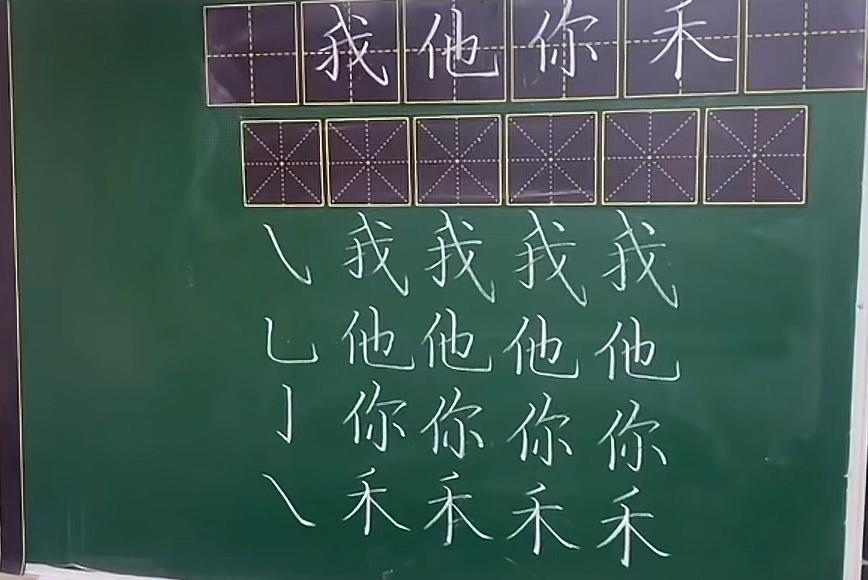 我他你禾
㇂我我我我
乚他他他他
亅你你你你
㇏禾禾禾禾